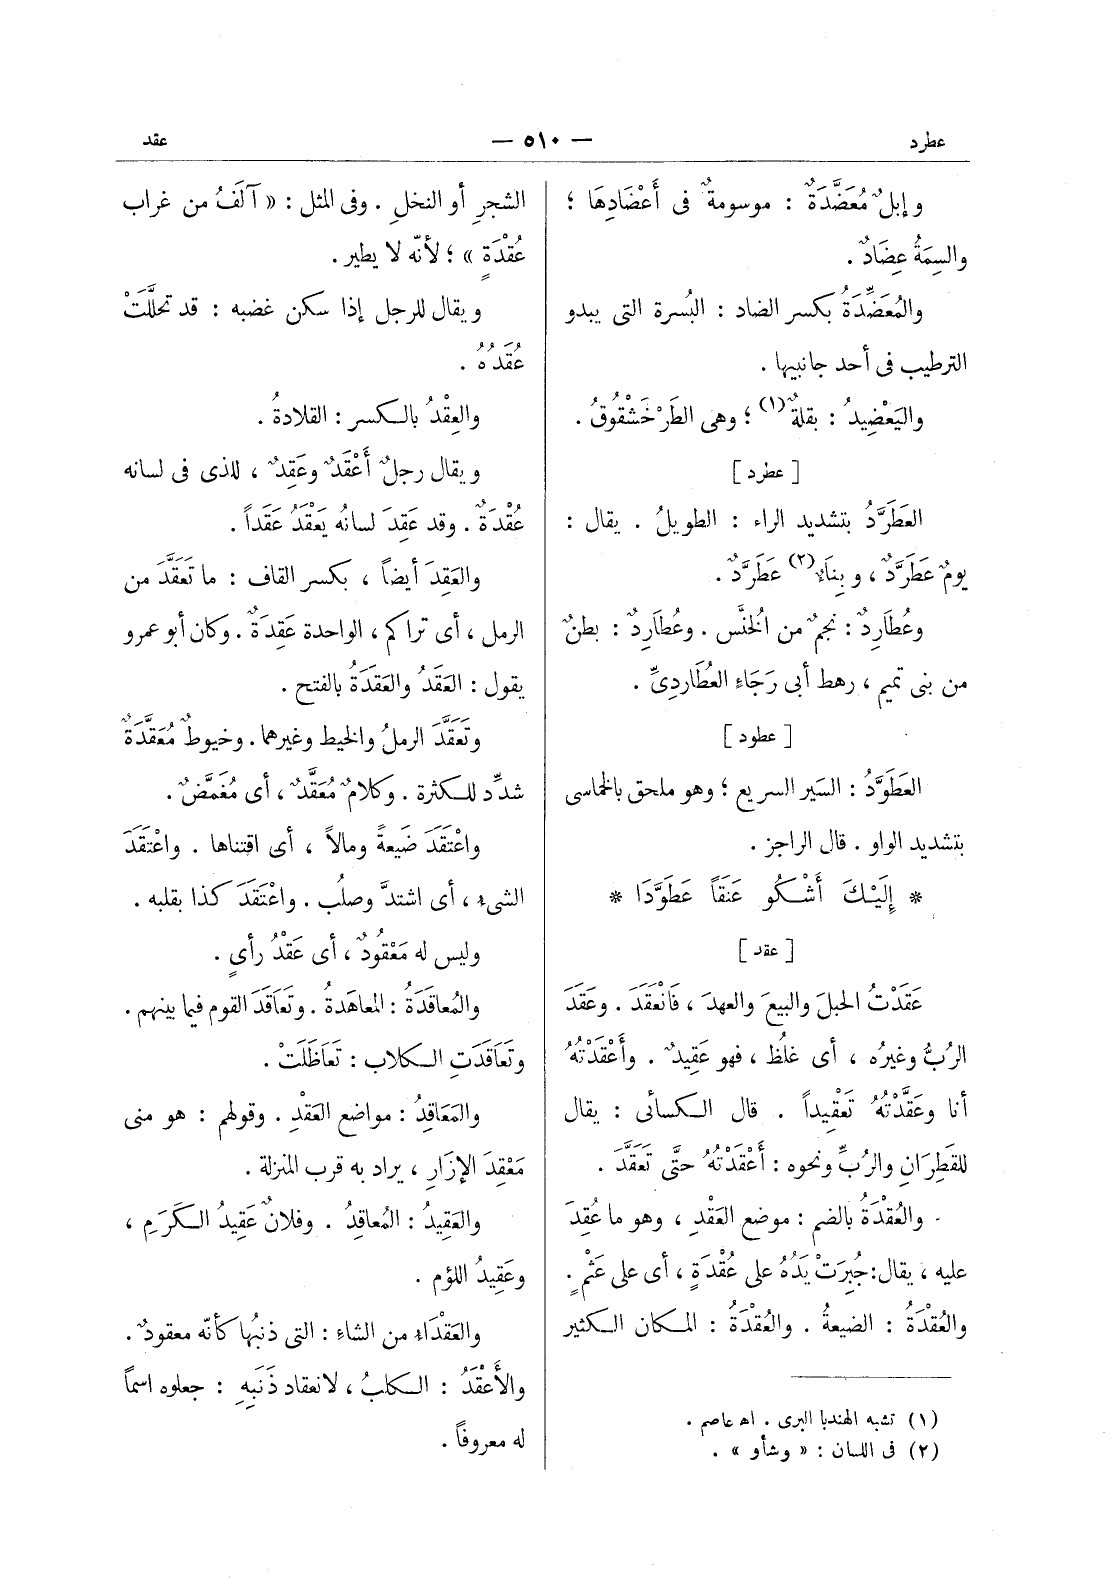 عطرد — ٥١٠ — عقد
وإبلٌ مُعَضَّدَةٌ : موسومةٌ فى أَعْضَادِهَا ؛
والسِمَةُ عِضَادٌ .
والمُعَضِّدَةُ بكسر الضاد : البُسرة التى يبدو
الترطيب فى أحد جانبيها .
واليَعْضِيدُ : بقلةٌ (١) ؛ وهى الطَرْخَشْقُوقُ .
[ عطرد ]
العَطَرَّدُ بتشديد الراء : الطويلُ . يقال :
يومٌ عَطَرَّدٌ ، وبِنَاءٌ (٢) عَطَرَّدٌ .
وعُطَارِدٌ : نجمٌ من الخُنَّس . وعُطَارِدٌ : بطنٌ
من بنى تميم ، رهط أبى رَجَاءِ العُطَاردِىِّ .
[ عطود ]
العَطَوَّدُ : السَير السريع ؛ وهو ملحق بالخماسى
بتشديد الواو . قال الراجز .
* إِلَيْكَ أَشْكُو عَنَقاً عَطَوَّدَا *
[ عقد ]
عَقَدْتُ الحبلَ والبيعَ والعهدَ ، فَانْعَقَدَ . وعَقَدَ
الرُبُّ وغيرُه ، أى غلُظ ، فهو عَقِيدٌ . وأَعْقَدْتُهُ
أنا وعَقَّدْتُهُ تَعْقِيداً . قال الكسائى : يقال
للقَطِرَانِ والرُبِّ ونحوه : أَعْقَدْتُهُ حتَّى تَعَقَّدَ .
والعُقْدَةُ بالضم : موضع العَقْدِ ، وهو ما عُقِدَ
عليه ، يقال: جُبِرَتْ يَدُهُ على عُقْدَةٍ ، أى على عَثْمٍ .
والعُقْدَةُ : الضيعةُ . والعُقْدَةُ : المكان الكثير
(١) تشبه الهندبا البرى . اه عاصم .
(٢) فى اللسان : « وشأو » .
الشجرِ أو النخلِ . وفى المثل : « آلَفُ من غراب
عُقْدَةٍ » ؛ لأنّه لا يطير .
ويقال للرجل إذا سكن غضبه : قد تحلَّلَتْ
عُقَدُهُ .
والعِقْدُ بالكسر : القلادةُ .
ويقال رجلٌ أَعْقَدٌ وعَقِدٌ ، للذى فى لسانه
عُقْدَةٌ . وقد عَقِدَ لسانُه يَعْقَدُ عَقَداً .
والعَقِدَ أيضاً ، بكسر القاف : ما تَعَقَّدَ من
الرمل ، أى تراكم ، الواحدة عَقِدَةٌ . وكان أبو عمرو
يقول : العَقَدُ والعَقَدَةُ بالفتح .
وتَعَقَّدَ الرملُ والخيط وغيرهما . وخيوطٌ مُعَقَّدَةٌ
شدِّد للكثرة . وكلامٌ مُعَقَّدٌ ، أى مُغَمَّضٌ .
واعْتَقَدَ ضَيعةً ومالاً ، أى اقتناها . واعْتَقَدَ
الشىء ، أى اشتدَّ وصلُب . واعْتَقَدَ كذا بقلبه .
وليس له مَعْقُودٌ ، أى عَقْدُ رأىٍ .
والمُعاقَدَةُ : المعاهَدةُ . وتَعَاقَدَ القوم فيما بينهم .
وتَعَاقَدَتِ الكلاب : تَعَاظَلَتْ .
والمَعَاقِدُ : مواضع العَقْدِ . وقولهم : هو منى
مَعْقِدَ الإزَارِ ، يراد به قرب المنزلة .
والعَقِيدُ : المُعاقِدُ . وفلانٌ عَقِيدُ الكَرَمِ ،
وعَقِيدُ اللؤم .
والعَقْدَاءُ من الشاءِ : التى ذنبُها كأنّه معقودٌ .
والأَعْقَدُ : الكلبُ ، لانعقاد ذَنَبِهِ : جعلوه اسماً
له معروفاً .